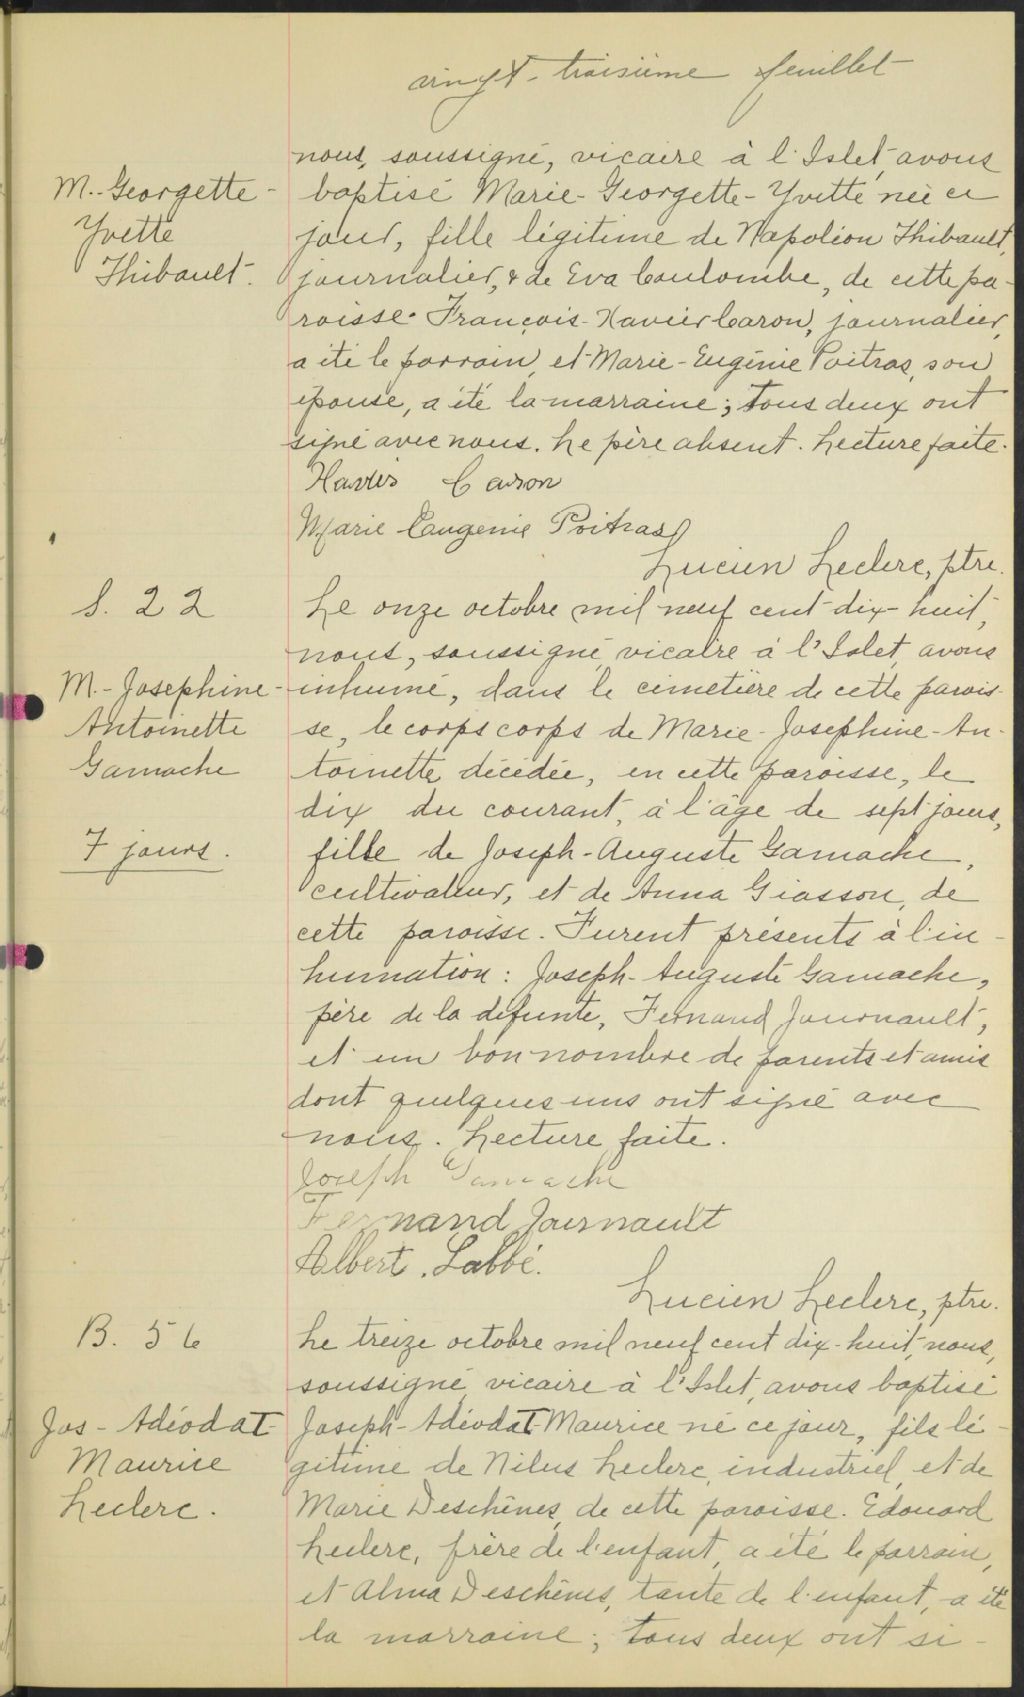 vingt-troisième feuillet
nous, soussigné, vicaire à l'Islet, avons
M.-Georgette-
Yvette
Thibault.
baptisé Marie-Georgette-Yvette née ce
jour, fille légitime de Napoléon Thibault,
journalier, & de Eva Coulombe, de cette pa-
roisse. François-Xavier Caron, journalier,
a été le parrain, et Marie-Eugénie Poitras, son
épouse, a été la marraine; tous deux ont
signé avec nous. Le père absent. Lecture faite.
Xavier Caron
Marie Eugenie Poitras
Lucien Leclerc, ptre.
S. 22
M.-Josephine-
Antoinette
Gamache
7 jours.
Le onze octobre mil neuf cent dix-huit,
nous, soussigné, vicaire à l'Islet, avons
inhumé, dans le cimetière de cette parois-
se, le corps corps de Marie-Josephine-An-
toinette, décédée, en cette paroisse, le
dix du courant, à l'âge de sept jours,
fille de Joseph-Auguste Gamache,
cultivateur, et de Anna Giasson, de
cette paroisse. Furent présents à l'in-
humation: Joseph-Auguste Gamache,
père de la défunte, Fernand Journault,
et un bon nombre de parents et amis
dont quelques uns ont signé avec
nous. Lecture faite.
Joseph Gamache
Fernand Journault
Albert Labbé.
Lucien Leclerc, ptre.
B. 56
Jos-Adéodat-
Maurice
Leclerc.
Le treize octobre mil neuf cent dix-huit, nous,
soussigné, vicaire à l'Islet, avons baptisé
Joseph-Adéodat-Maurice né ce jour, fils lé-
gitime de Nilus Leclerc, industriel, et de
Marie Deschênes, de cette paroisse. Edouard
Leclerc, frère de l'enfant, a été le parrain,
et Alma Deschênes, tante de l'enfant, a été
la marraine; tous deux ont si-